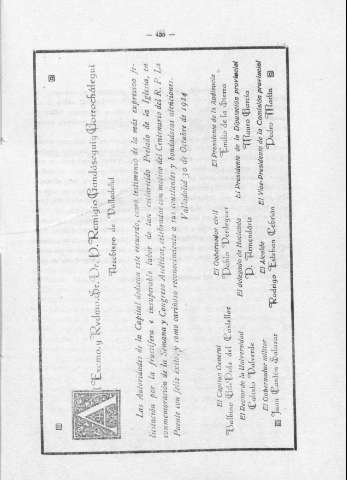 — 430 —
Al Excmo. y Rvdmo. Sr. Dr. D. Remigio Gandásegui y Gorrochátegui
Arzobispo de Valladolid
Las Autoridades de la Capital dedican este recuerdo, como testimonio de la más expresiva fe-
licitación por la fructífera e insuperable labor de tan esclarecido Prelado de la Iglesia, en
conmemoración de la Semana y Congreso Ascéticos, celebrados con motivo del Centenario del R. P. La
Puente con feliz éxito, y como cariñoso reconocimiento a sus constantes y bondadosas atenciones.
Valladolid 30 de Octubre de 1924
El Capitán General
El Gobernador civil
El Presidente de la Audiencia
Pablo Verdeguer
Emilio de la Sierra
El Rector de la Universidad
El delegado de Hacienda
El Presidente de la Diputación provincial
Calixto Valverde
P. Armendáriz
Mauro García
El Gobernador militar
El Alcalde
El Vice-Presidente de la Comisión provincial
Juan Cantón Salazar
Rodrigo Esteban Cebrián
Pedro Martín